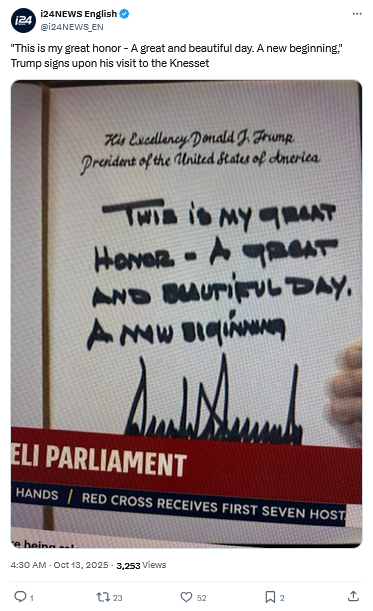 i24NEWS English
@i24NEWS_EN
"This is my great honor - A great and beautiful day. A new beginning,"
Trump signs upon his visit to the Knesset
His Excellency Donald J. Trump
President of the United States of America
THIS is MY GREAT
HONOR - A GREAT
AND BEAUTiFUL DAY.
A NEW BEGiNNiNG
ELI PARLIAMENT
HANDS / RED CROSS RECEIVES FIRST SEVEN HOST
4:30 AM · Oct 13, 2025 · 3,253 Views
1 23 52 2